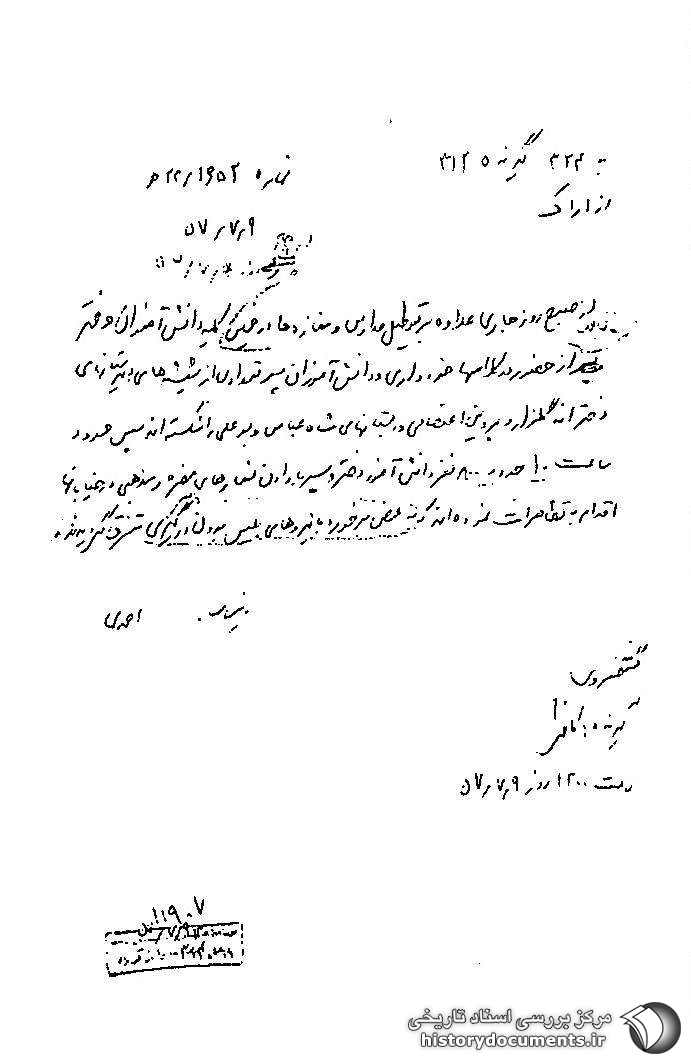 به ۳۲۴ گیرنده ۳۱۲۵
از اراک
شماره ۲۲/۱۹۵۲ ه‍
۵۷/۷/۹
از صبح روز جاری علاوه بر تعطیل مدارس و مغازه‌ها در ضمن کلیه دانش آموزان دختر
از حضور در کلاسها خودداری و دانش آموزان پسر تعدادی از شیشه‌های دبیرستانهای
دخترانه گلزار و پروین اعتصامی و دبستانهای شاه عباس و بوعلی را شکسته اند سپس حدود
ساعت ۱۰ حدود ۸۰۰ نفر دانش آموز دختر و پسر با دادن شعارهای مضره و مذهبی در خیابانها
اقدام به تظاهرات نموده اند که به محض برخورد با نیروهای پلیس بدون درگیری متفرق گردیدند
احمدی
گیرنده :
ساعت ۱۲۰۰ روز ۵۷/۷/۹
۱۱۹۰۷
مرکز بررسی اسناد تاریخی
historydocuments.ir